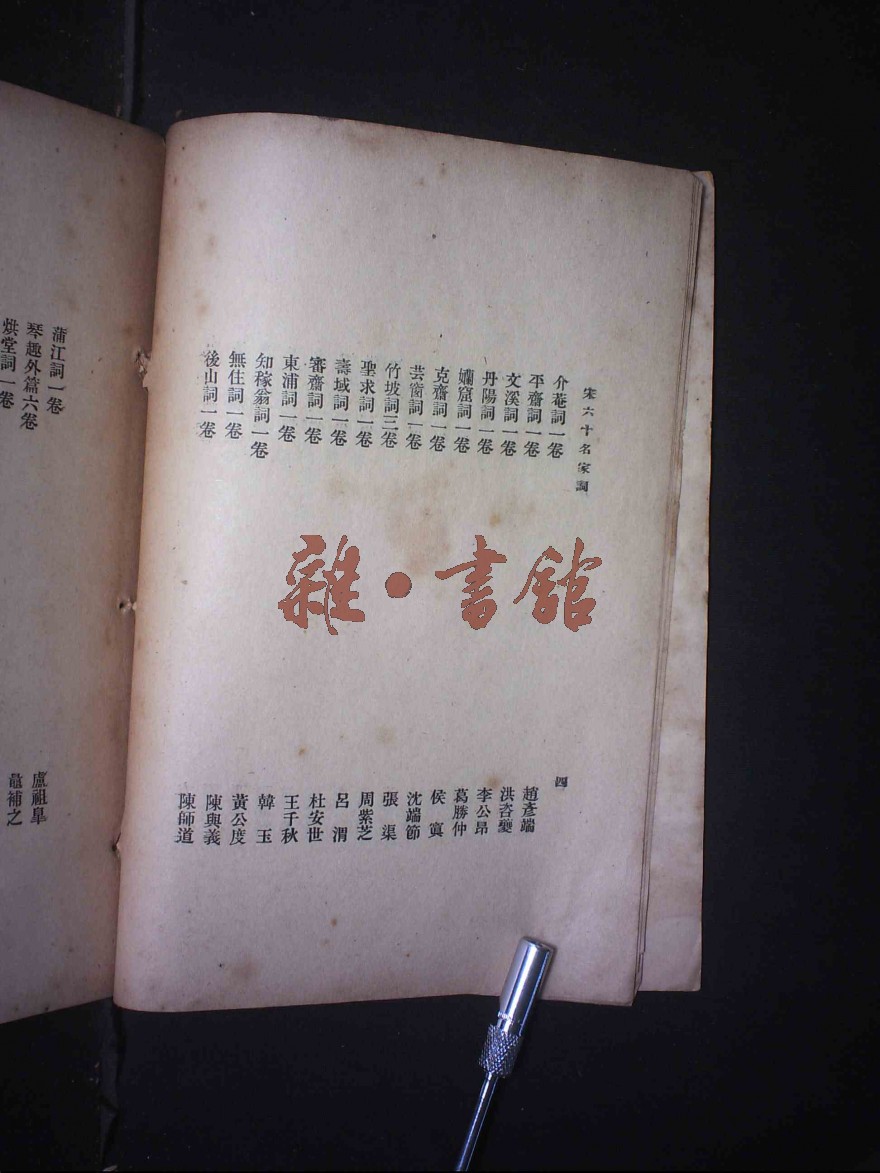 宋六十名家詞 四
介菴詞一卷 趙彥端
平齋詞一卷 洪咨夔
文溪詞一卷 李公昂
丹陽詞一卷 葛勝仲
孏窟詞一卷 侯寘
克齋詞一卷 沈端節
芸窗詞一卷 張渠
竹坡詞三卷 周紫芝
聖求詞一卷 呂渭
壽域詞一卷 杜安世
審齋詞一卷 王千秋
東浦詞一卷 韓玉
知稼翁詞一卷 黃公度
無住詞一卷 陳與義
後山詞一卷 陳師道
蒲江詞一卷 盧祖皐
琴趣外篇六卷 鼂補之
烘堂詞一卷
雜·書館